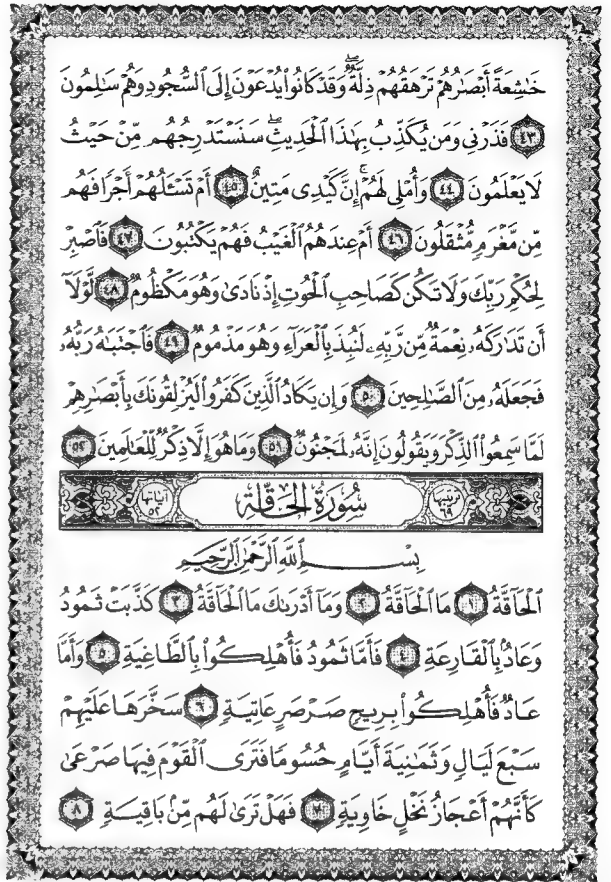 خَٰشِعَةً أَبْصَٰرُهُمْ تَرْهَقُهُمْ ذِلَّةٌ ۖ وَقَدْ كَانُوا۟ يُدْعَوْنَ إِلَى ٱلسُّجُودِ وَهُمْ سَٰلِمُونَ
٤٣ فَذَرْنِى وَمَن يُكَذِّبُ بِهَٰذَا ٱلْحَدِيثِ ۖ سَنَسْتَدْرِجُهُم مِّنْ حَيْثُ
لَا يَعْلَمُونَ ٤٤ وَأُمْلِى لَهُمْ ۚ إِنَّ كَيْدِى مَتِينٌ ٤٥ أَمْ تَسْـَٔلُهُمْ أَجْرًا فَهُم
مِّن مَّغْرَمٍ مُّثْقَلُونَ ٤٦ أَمْ عِندَهُمُ ٱلْغَيْبُ فَهُمْ يَكْتُبُونَ ٤٧ فَٱصْبِرْ
لِحُكْمِ رَبِّكَ وَلَا تَكُن كَصَاحِبِ ٱلْحُوتِ إِذْ نَادَىٰ وَهُوَ مَكْظُومٌ ٤٨ لَّوْلَآ
أَن تَدَٰرَكَهُۥ نِعْمَةٌ مِّن رَّبِّهِۦ لَنُبِذَ بِٱلْعَرَآءِ وَهُوَ مَذْمُومٌ ٤٩ فَٱجْتَبَٰهُ رَبُّهُۥ
فَجَعَلَهُۥ مِنَ ٱلصَّٰلِحِينَ ٥٠ وَإِن يَكَادُ ٱلَّذِينَ كَفَرُوا۟ لَيُزْلِقُونَكَ بِأَبْصَٰرِهِمْ
لَمَّا سَمِعُوا۟ ٱلذِّكْرَ وَيَقُولُونَ إِنَّهُۥ لَمَجْنُونٌ ٥١ وَمَا هُوَ إِلَّا ذِكْرٌ لِّلْعَٰلَمِينَ ٥٢
ترتيبها ٦٩ سُورَةُ الحَاقَّةِ آياتها ٥٢
بِسْمِ ٱللَّهِ ٱلرَّحْمَٰنِ ٱلرَّحِيمِ
ٱلْحَآقَّةُ ١ مَا ٱلْحَآقَّةُ ٢ وَمَآ أَدْرَىٰكَ مَا ٱلْحَآقَّةُ ٣ كَذَّبَتْ ثَمُودُ
وَعَادٌۢ بِٱلْقَارِعَةِ ٤ فَأَمَّا ثَمُودُ فَأُهْلِكُوا۟ بِٱلطَّاغِيَةِ ٥ وَأَمَّا
عَادٌ فَأُهْلِكُوا۟ بِرِيحٍ صَرْصَرٍ عَاتِيَةٍ ٦ سَخَّرَهَا عَلَيْهِمْ
سَبْعَ لَيَالٍ وَثَمَٰنِيَةَ أَيَّامٍ حُسُومًا فَتَرَى ٱلْقَوْمَ فِيهَا صَرْعَىٰ
كَأَنَّهُمْ أَعْجَازُ نَخْلٍ خَاوِيَةٍ ٧ فَهَلْ تَرَىٰ لَهُم مِّنۢ بَاقِيَةٍ ٨